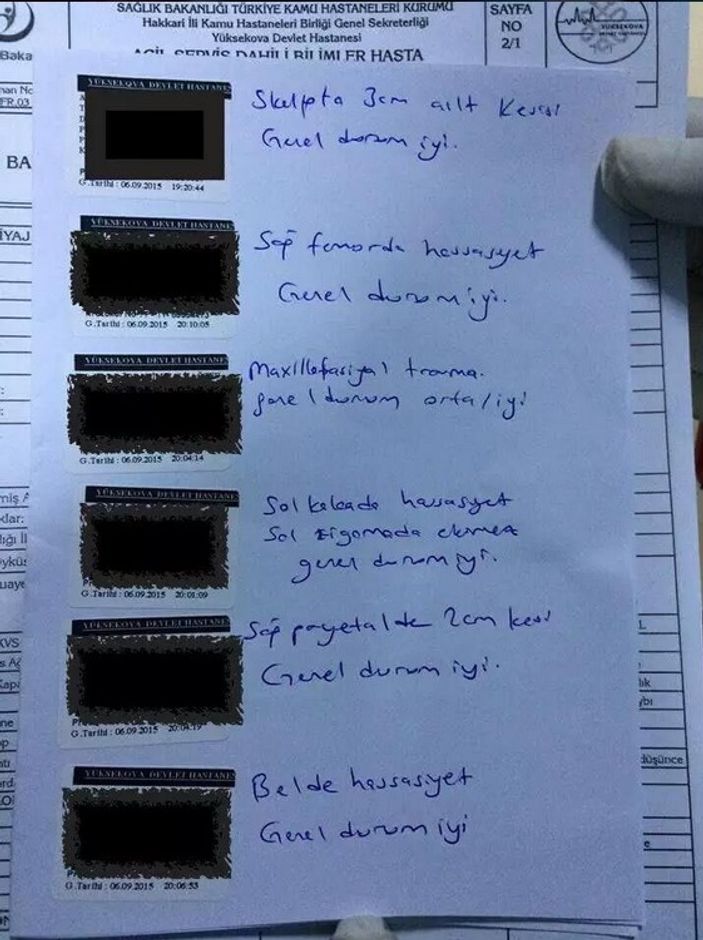 SAĞLIK BAKANLIĞI TÜRKİYE KAMU HASTANELERİ KURUMU
Hakkari İli Kamu Hastaneleri Birliği Genel Sekreterliği
Yüksekova Devlet Hastanesi
ACİL SERVİS DAHİLİ BİLİMLER HASTA
SAYFA
NO
2/1
YÜKSEKOVA
Baka
FR.03
BA
İYAJ
YÜKSEKOVA DEVLET HASTANE
G.Tarihi : 06.09.2015 19:20:44
Skalpta 3cm cilt kesisi
Genel durum iyi.
YÜKSEKOVA DEVLET HASTANE
G.Tarihi : 06.09.2015 20:10:05
Sağ femorda hassasiyet
Genel durum iyi.
YÜKSEKOVA DEVLET HASTANE
G.Tarihi : 06.09.2015 20:04:14
Maxillofasiyal travma.
genel durum orta/iyi
YÜKSEKOVA DEVLET HASTANE
G.Tarihi : 06.09.2015 20:01:09
Sol kalcada hassasiyet
Sol zigomada ekimoz
genel durum iyi.
YÜKSEKOVA DEVLET HASTANE
G.Tarihi : 06.09.2015 20:04:19
Sağ payetalde 2cm kesi
Genel durum iyi.
YÜKSEKOVA DEVLET HASTANE
G.Tarihi : 06.09.2015 20:06:53
Belde hassasiyet
Genel durum iyi
düşünce